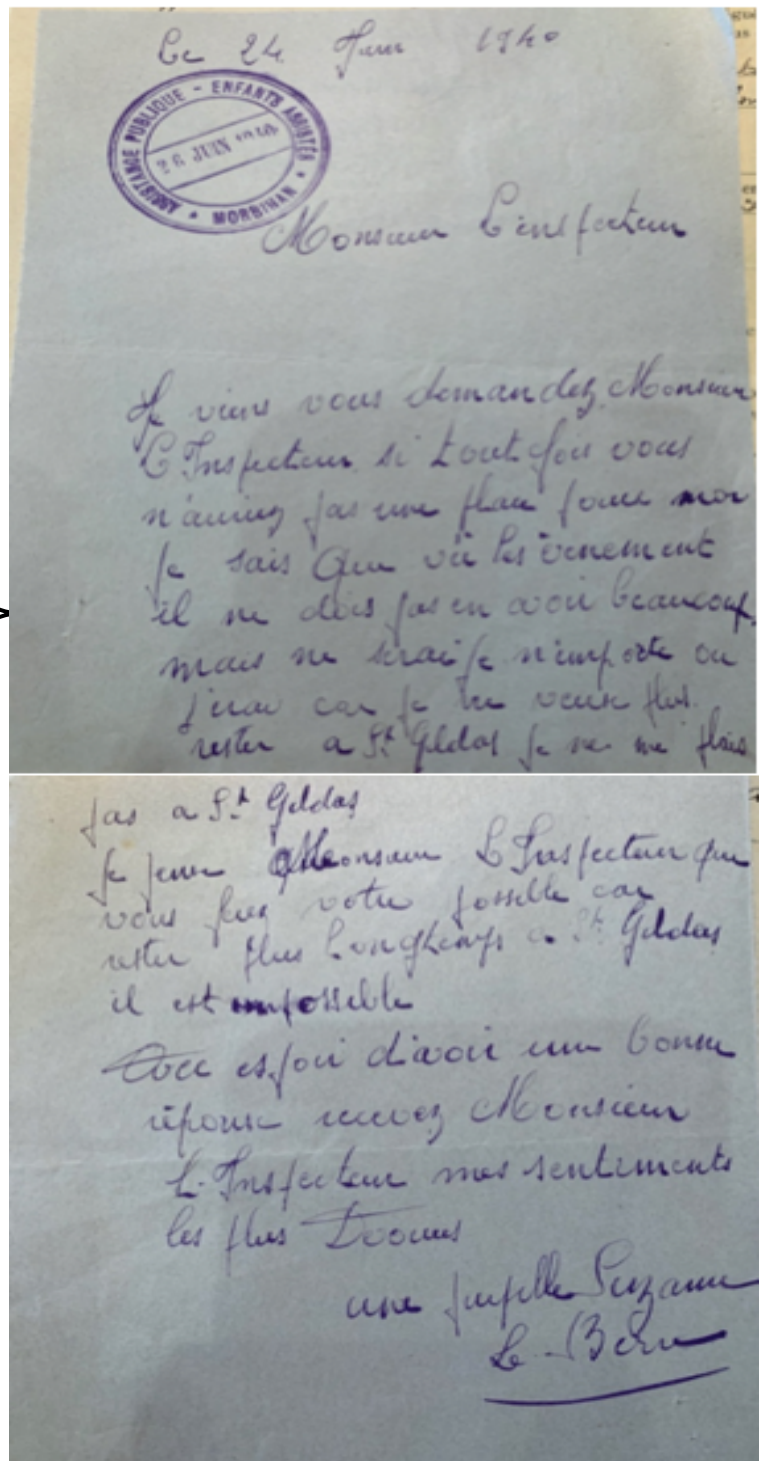 Le 24 Juin 1940
ASSISTANCE PUBLIQUE - ENFANTS ASSISTÉS
26 JUIN 1940
MORBIHAN
Monsieur L'inspecteur
Je viens vous demandez Monsieur
L'Inspecteur si toutefois vous
n'auriez pas une place pour moi
je sais Que vu les évenement
il ne dois pas en avoir beaucoup,
mais ne serai je n'importe ou
j'irai car je ne veux plus
rester a St Gildas je ne me plais
pas a St Gildas
Je pense Monsieur L'Inspecteur que
vous ferez votre possible car
rester plus Longtemps a St Gildas
il est impossible
Avec espoir d'avoir une bonne
réponse recevez Monsieur
L'Inspecteur mes sentiments
les plus Dévoués
une pupille Suzanne
Le